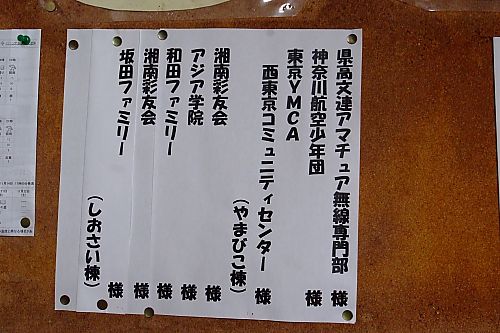 県高文連アマチュア無線専門部 様
神奈川航空少年団 様
東京YMCA
西東京コミュニティセンター 様
(やまびこ棟)
湘南彩友会 様
アジア学院 様
和田ファミリー 様
湘南彩友会 様
坂田ファミリー 様
(しおさい棟)